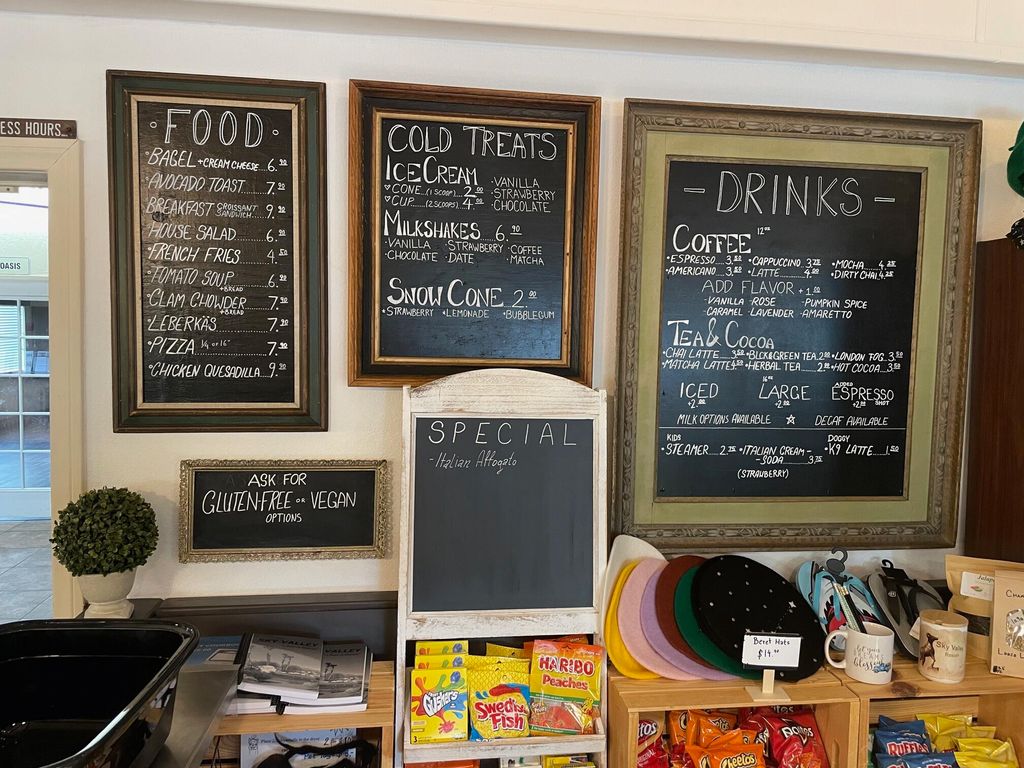 ESS HOURS...
OASIS
·FOOD·
·BAGEL + CREAM CHEESE 6.90
·AVOCADO TOAST 7.90
·BREAKFAST CROISSANT SANDWICH 9.90
·HOUSE SALAD 6.90
·FRENCH FRIES 4.50
·TOMATO SOUP + BREAD 6.90
·CLAM CHOWDER + BREAD 7.90
·LEBERKÄS 7.90
·PIZZA 7.90
·CHICKEN QUESADILLA 9.50
ASK FOR
GLUTEN-FREE OR VEGAN
OPTIONS
COLD TREATS
ICE CREAM
♡ CONE...(1 SCOOP) 2.00
♡ CUP...(2 SCOOPS) 4.00
·VANILLA
·STRAWBERRY
·CHOCOLATE
MILKSHAKES 6.90
·VANILLA ·STRAWBERRY ·COFFEE
·CHOCOLATE ·DATE ·MATCHA
SNOW CONE 2.00
·STRAWBERRY ·LEMONADE ·BUBBLEGUM
SPECIAL
-Italian Affogato
-DRINKS-
COFFEE 12oz
·ESPRESSO 3.50 ·CAPPUCCINO 3.75 ·MOCHA 4.25
·AMERICANO 3.50 ·LATTE 4.00 ·DIRTY CHAI 4.25
ADD FLAVOR +1.00
·VANILLA ·ROSE ·PUMPKIN SPICE
·CARAMEL ·LAVENDER ·AMARETTO
TEA & COCOA
·CHAI LATTE 3.50 ·BLCK&GREEN TEA 2.00 ·LONDON FOG 3.50
·MATCHA LATTE 4.50 ·HERBAL TEA 2.00 ·HOT COCOA 3.50
ICED +2.00
16oz LARGE +2.00
ADDED ESPRESSO SHOT +2.00
MILK OPTIONS AVAILABLE ☆ DECAF AVAILABLE
KIDS
·STEAMER 2.75 ·ITALIAN CREAM-
-SODA 3.75
(STRAWBERRY)
DOGGY
·K9 LATTE 1.50
Beret Hats
$14.00
SKY VALLEY
VALLEY
SWEDISH
Fish
HARIBO
Peaches
Cheetos
Cheetos
Doritos
RUFFLES
Sky Valley